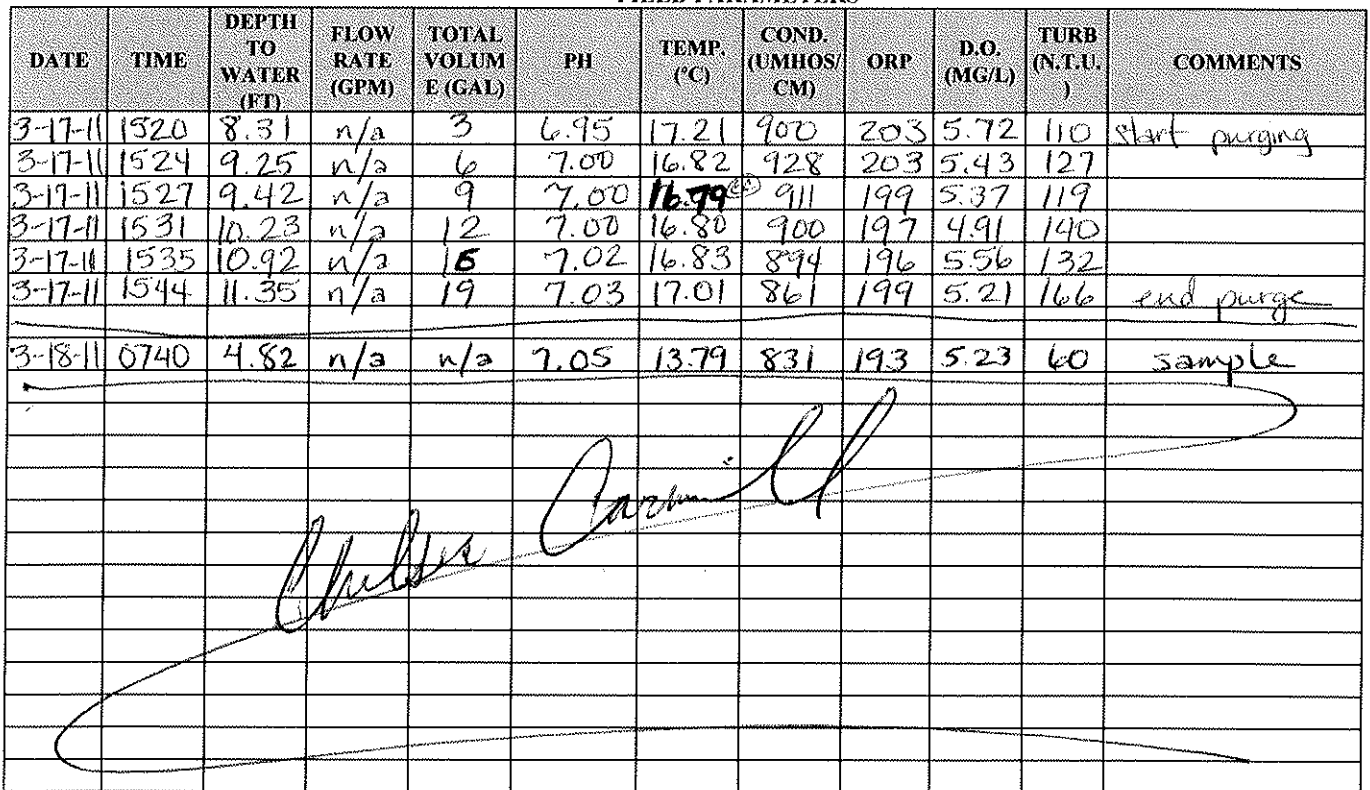 FIELD PARAMETERS
DATE TIME DEPTH TO WATER (FT) FLOW RATE (GPM) TOTAL VOLUM E (GAL) PH TEMP. (°C) COND. (UMHOS/ CM) ORP D.O. (MG/L) TURB (N.T.U. ) COMMENTS
3-17-11 1520 8.31 n/a 3 6.95 17.21 900 203 5.72 110 start purging
3-17-11 1524 9.25 n/a 6 7.00 16.82 928 203 5.43 127
3-17-11 1527 9.42 n/a 9 7.00 16.79 911 199 5.37 119
3-17-11 1531 10.23 n/a 12 7.00 16.80 900 197 4.91 140
3-17-11 1535 10.92 n/a 15 7.02 16.83 894 196 5.56 132
3-17-11 1544 11.35 n/a 19 7.03 17.01 861 199 5.21 166 end purge
3-18-11 0740 4.82 n/a n/a 7.05 13.79 831 193 5.23 60 sample
Chelsea